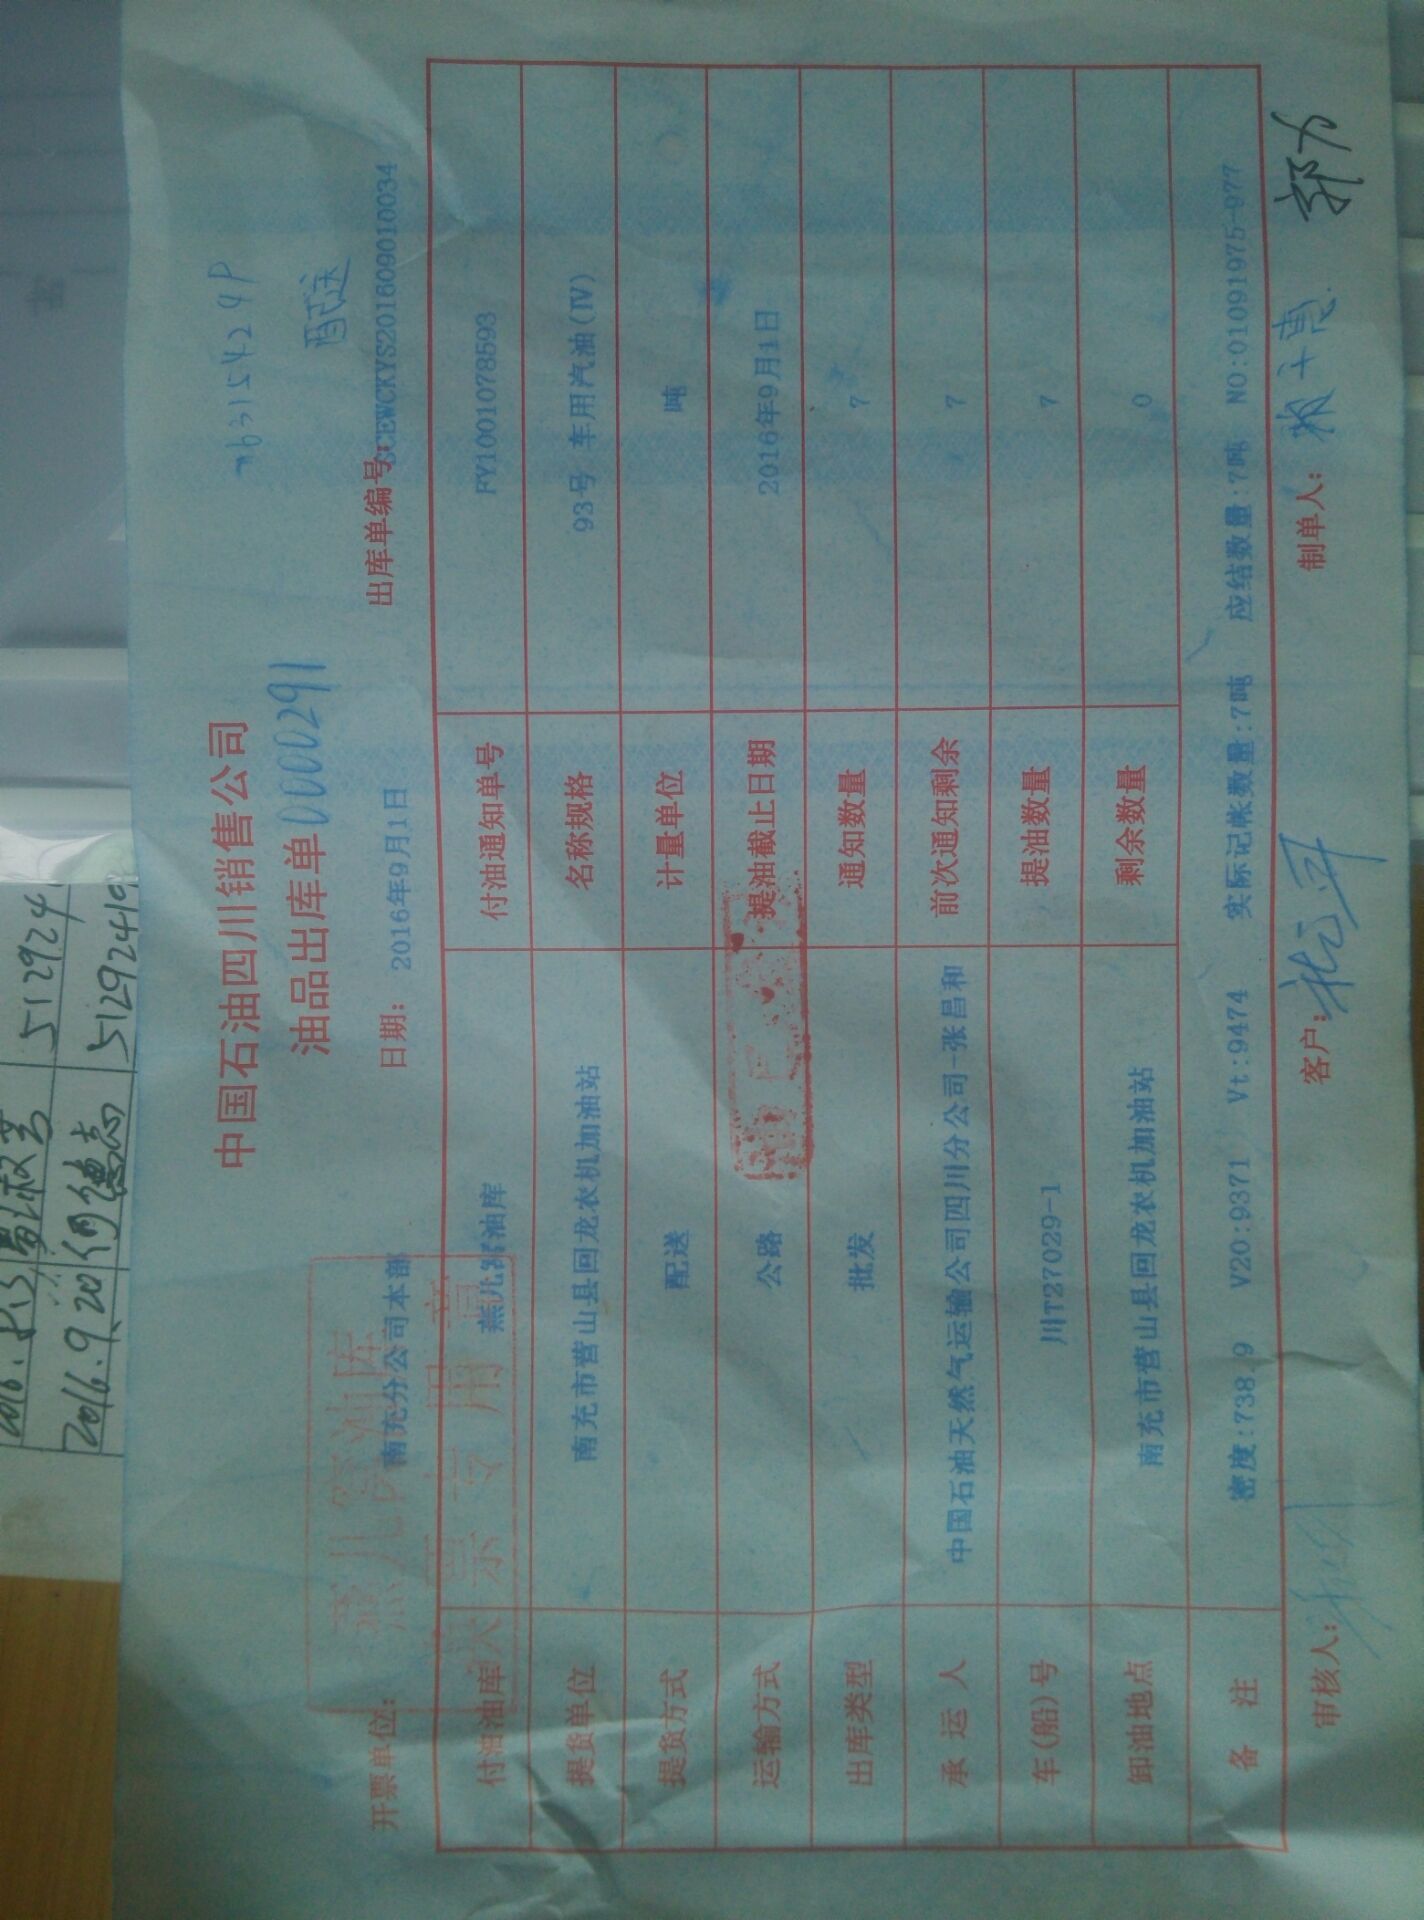 中国石油四川销售公司
油品出库单 0000291
配送
开票单位: 南充分公司本部
日期: 2016年9月1日
出库单编号:SCEWCKYS201609010034
付油油库 燕儿窝油库 付油通知单号 FY1001078593
提货单位 南充市营山县回龙农机加油站 名称规格 93号 车用汽油(Ⅳ)
提货方式 配送 计量单位 吨
运输方式 公路 提油截止日期 2016年9月1日
出库类型 批发 通知数量 7
承运人 中国石油天然气运输公司四川分公司-张昌和 前次通知剩余 7
车(船)号 川T27029-1 提油数量 7
卸油地点 南充市营山县回龙农机加油站 剩余数量 0
备注 密度:738.9 V20:9371 Vt:9474 实际记帐数量:7吨 应结数量:7吨 NO:01091975-977
审核人: 客户: 制单人:
燕儿窝油库
专用章
2016.9.20 何德志 5129241
512924